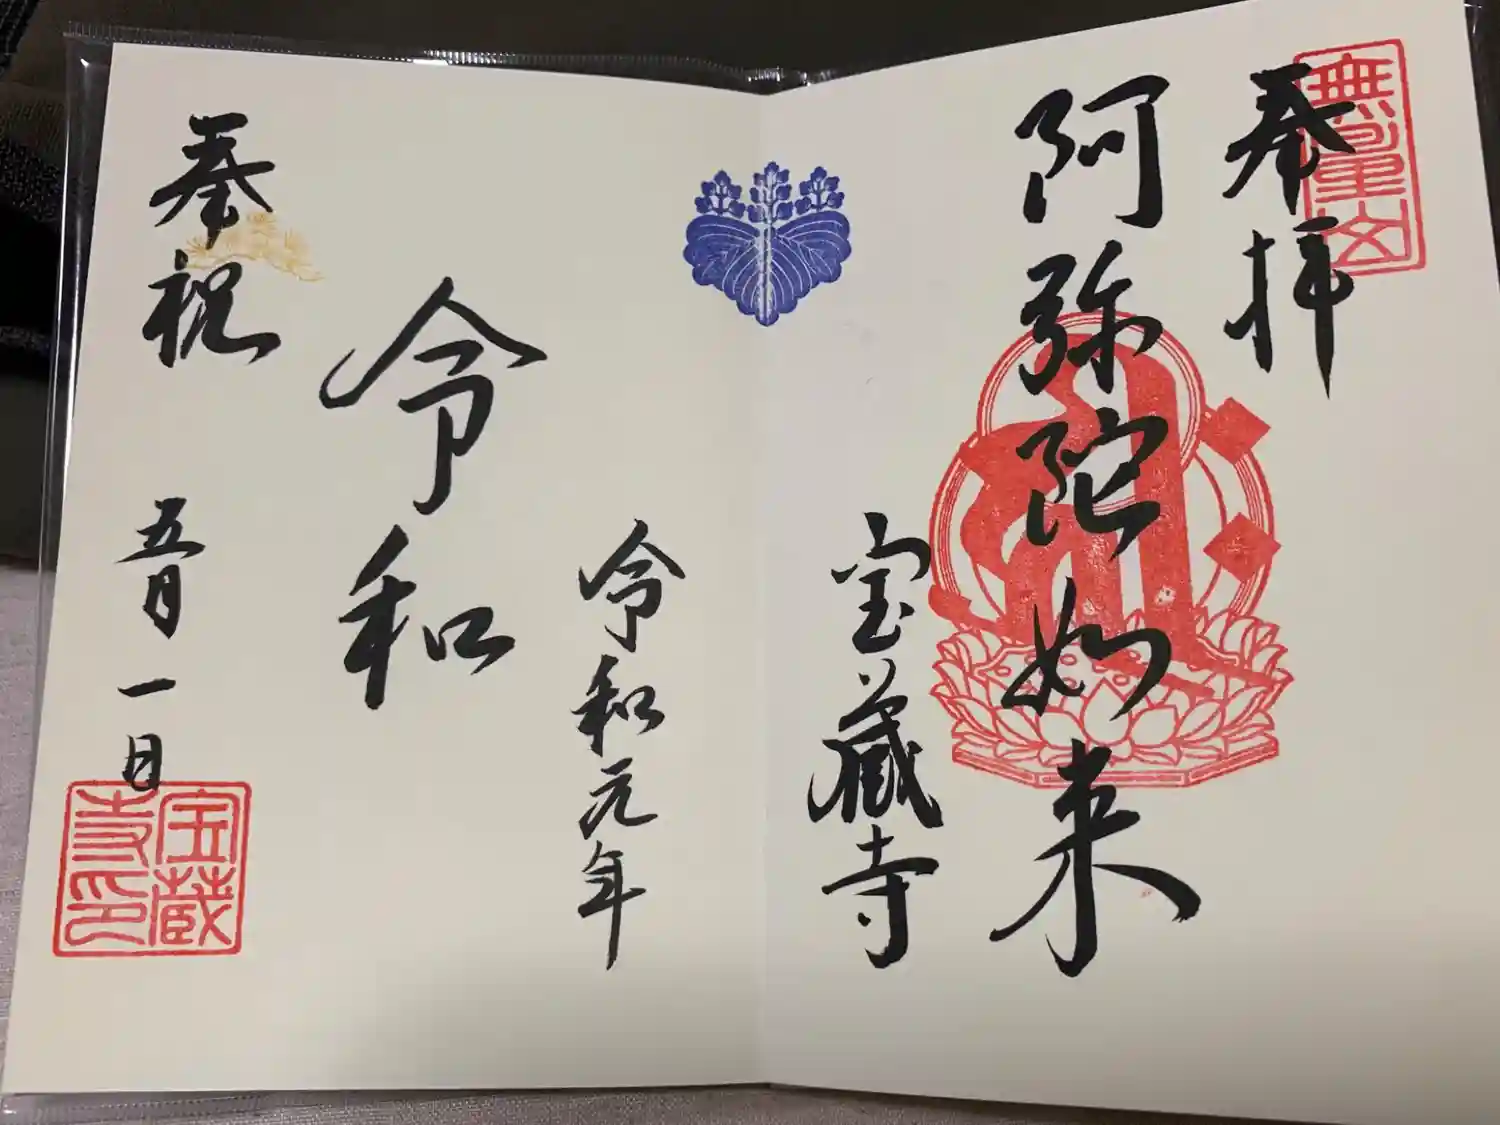 奉拝
無量山
阿弥陀如来
宝蔵寺
令和元年
令和
奉祝
五月一日
宝蔵
寺印